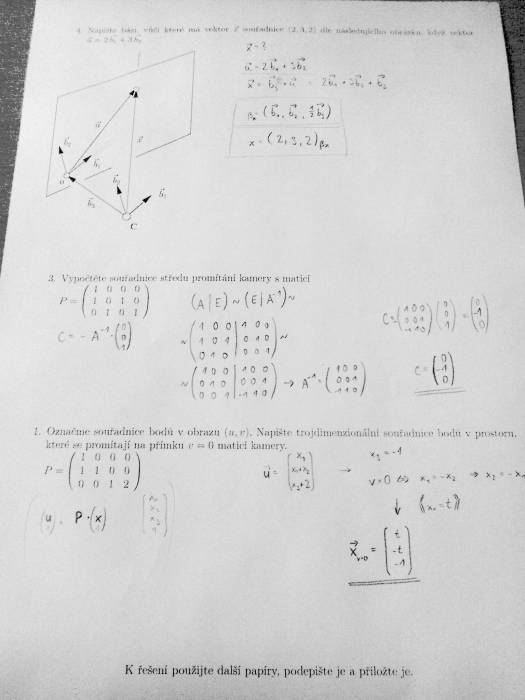 4. Napište bázi, vůči které má vektor x⃗ souřadnice (2, 3, 2) dle následujícího obrázku, když vektor
u⃗ = 2b⃗₁ + 3b⃗₂
x⃗ = ?
u⃗ = 2b⃗₁ + 3b⃗₂
x⃗ = b⃗₃ + u⃗ = 2b⃗₁ + 3b⃗₂ + b⃗₃
βₓ = (b⃗₁, b⃗₂, ½b⃗₃)
x = (2, 3, 2)βₓ
u⃗
x⃗
b⃗₂
b⃗₁
o
b⃗₂
b⃗₁
b⃗₃
C
3. Vypočtěte souřadnice středu promítání kamery s maticí
P = ( 1 0 0 0
1 0 1 0
0 1 0 1 )
C = - A⁻¹ · ( 0
0
1 )
(A | E) ~ (E | A⁻¹) ~
~ ( 1 0 0 | 1 0 0
1 0 1 | 0 1 0
0 1 0 | 0 0 1 ) ~
~ ( 1 0 0 | 1 0 0
0 1 0 | 0 0 1
0 0 1 | -1 1 0 ) → A⁻¹ = ( 1 0 0
0 0 1
-1 1 0 )
C = - ( 1 0 0
0 0 1
-1 1 0 ) ( 0
0
1 ) = ( 0
-1
0 )
C = ( 0
-1
0 )
1. Označme souřadnice bodů v obrazu (u, v). Napište trojdimenzionální souřadnice bodů v prostoru,
které se promítají na přímku v = 0 maticí kamery.
P = ( 1 0 0 0
1 1 0 0
0 0 1 2 )
( u
1 ) = P · ( x
1 )
[ x₁
x₂
x₃
1 ]
u⃗ = [ x₁
x₁+x₂
x₃+2 ]
→ x₃ = -1
v = 0 ⇔ x₁ = -x₂ ⇒ x₂ = -x₁
↓ (x₁ = t)
x⃗ᵥ₌₀ = ( t
-t
-1 )
K řešení použijte další papíry, podepište je a přiložte je.